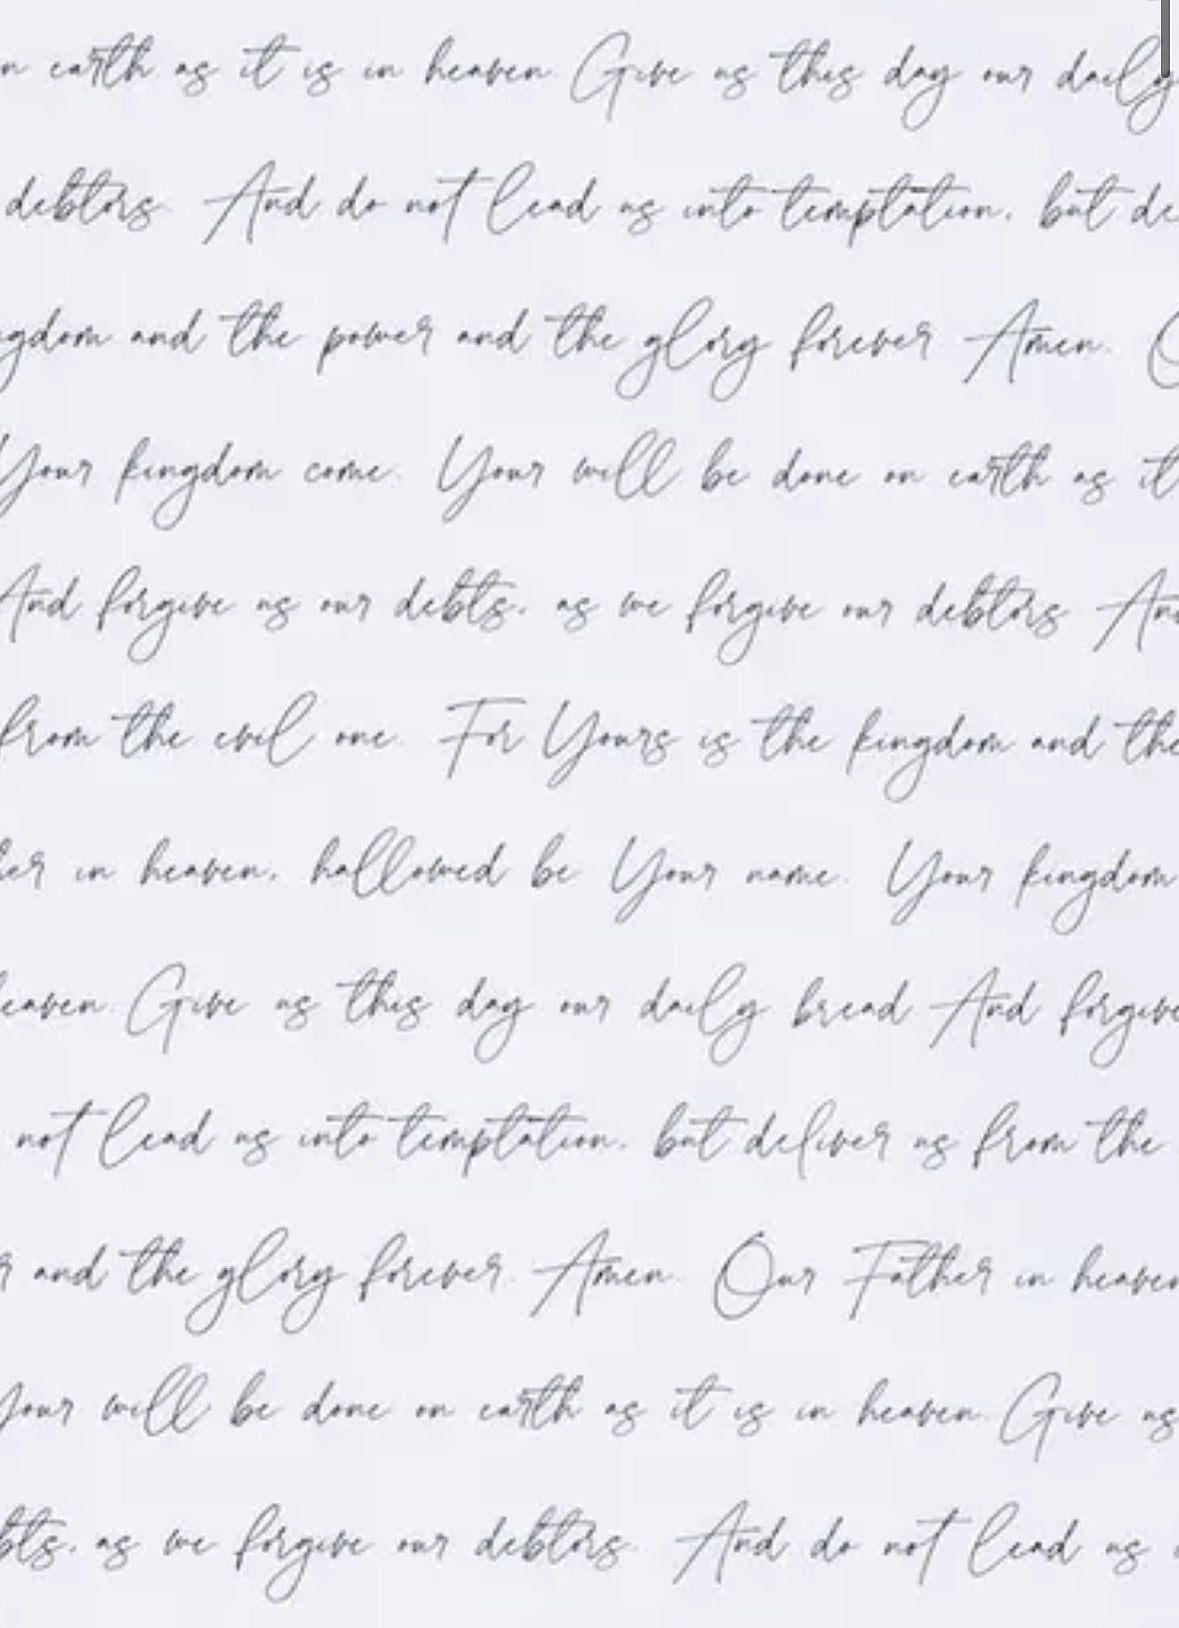 n earth as it is in heaven. Give us this day our daily
debtors. And do not lead us into temptation, but de
ngdom and the power and the glory forever. Amen. O
Your kingdom come. Your will be done on earth as it
And forgive us our debts, as we forgive our debtors. And
from the evil one. For Yours is the kingdom and the
her in heaven, hallowed be Your name. Your kingdom
heaven. Give us this day our daily bread. And forgive
not lead us into temptation, but deliver us from the
r and the glory forever. Amen. Our Father in heaven
Your will be done on earth as it is in heaven. Give us
bts, as we forgive our debtors. And do not lead us i